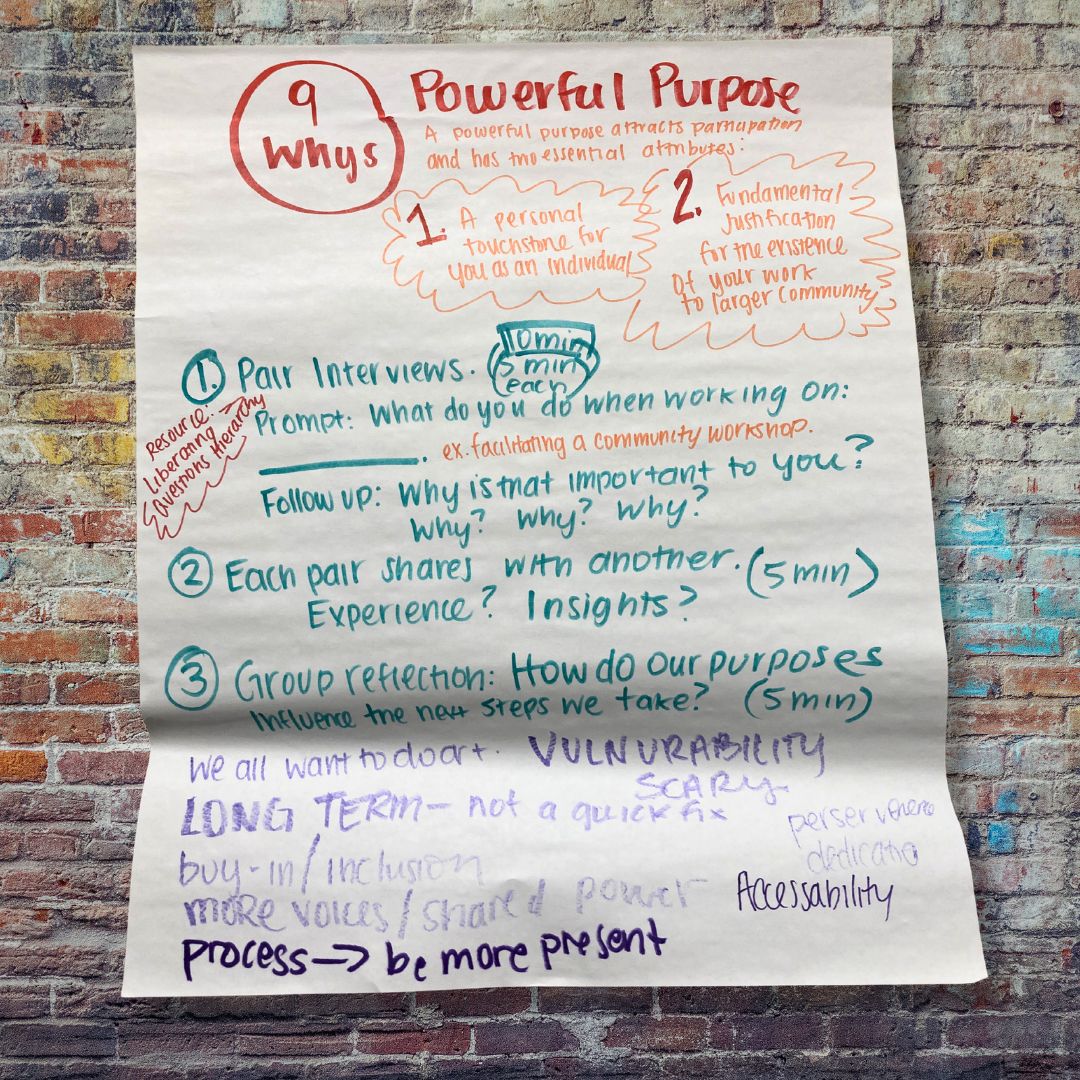 9
Whys
Powerful Purpose
A powerful purpose attracts participation
and has two essential attributes:
1. A personal
touchstone for
you as an individual
2. Fundamental
Justification
for the existence
of your work
to larger community
1. Pair Interviews.
10 min
5 min
each
Prompt: What do you do when working on:
________. ex. facilitating a community workshop.
Resource:
Liberating
Questions Hierarchy
Follow up: Why is that important to you?
Why? Why? Why?
2 Each pair shares with another. (5 min)
Experience? Insights?
3 Group reflection: How do our purposes
influence the next steps we take? (5 min)
We all want to do art. VULNURABILITY
SCARY
LONG TERM - not a quick fix
perserverence
dedicatio
buy-in/inclusion
more voices/shared power
Accessability
process → be more present